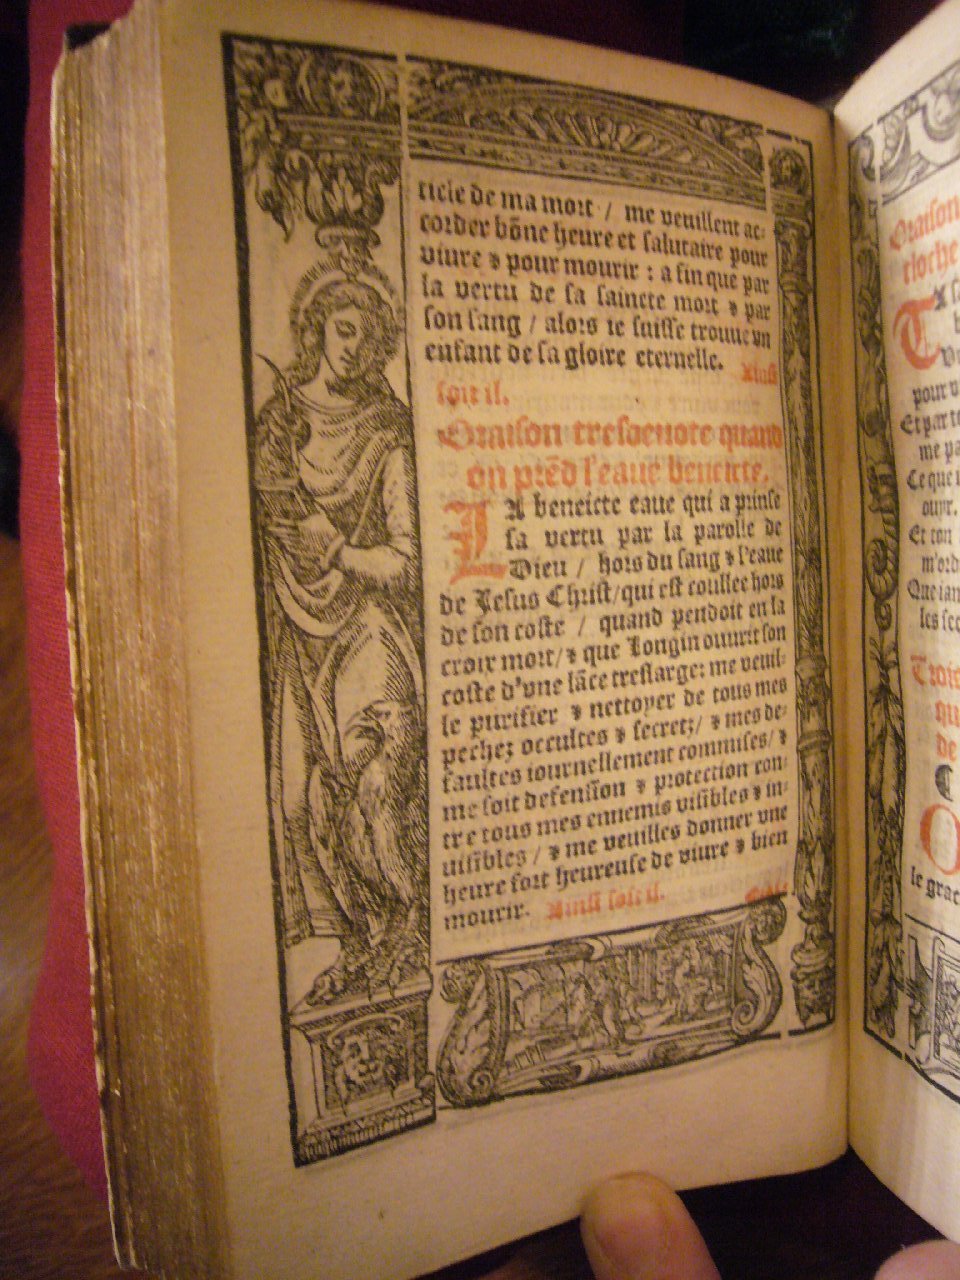 ticle de ma mort / me veuillent ac-
corder bõne heure et salutaire pour
viure & pour mourir : a fin que par
la vertu de sa saincte mort & par
son sang / alors ie suisse trouue vn
enfant de sa gloire eternelle. Ainsi
soit il.
Oraison tresdeuote quand
on prẽd l'eaue beneicte.
LA beneicte eaue qui a prinse
sa vertu par la parolle de
Dieu / hors du sang & l'eaue
de Jesus Christ / qui est coullee hors
de son coste / quand pendoit en la
croix mort / & que Longin ouurit son
coste d'vne lãce treslarge: me veuil-
le purifier & nettoyer de tous mes
pechez occultes & secretz / & mes de-
faultes iournellement commises / &
me soit defension & protection con-
tre tous mes ennemis visibles & in-
uisibles / & me veuilles donner vne
heure fort heureuse de viure & bien
mourir. Ainsi soit il.
Oraison
cloche
pour
Et par
me pa
Ce que
ouyr.
Et ton
m'ord
Que iam
les sec
Trois
qu
de
¶
O
le grac